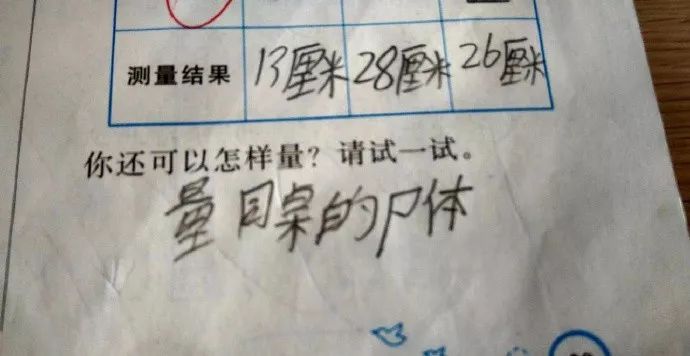 测量结果 13厘米 28厘米 26厘米
你还可以怎样量？请试一试。
量同桌的尸体